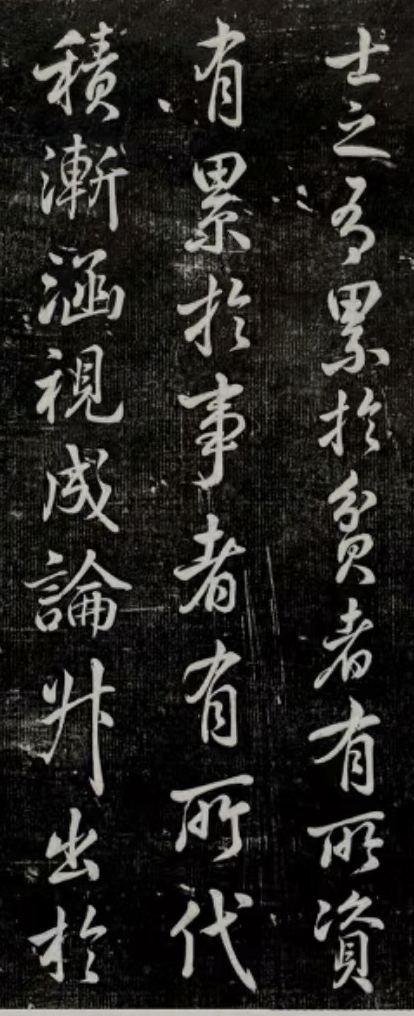 士之有累於貧者有所資
有累於事者有所代
積漸涵視成論卅出於